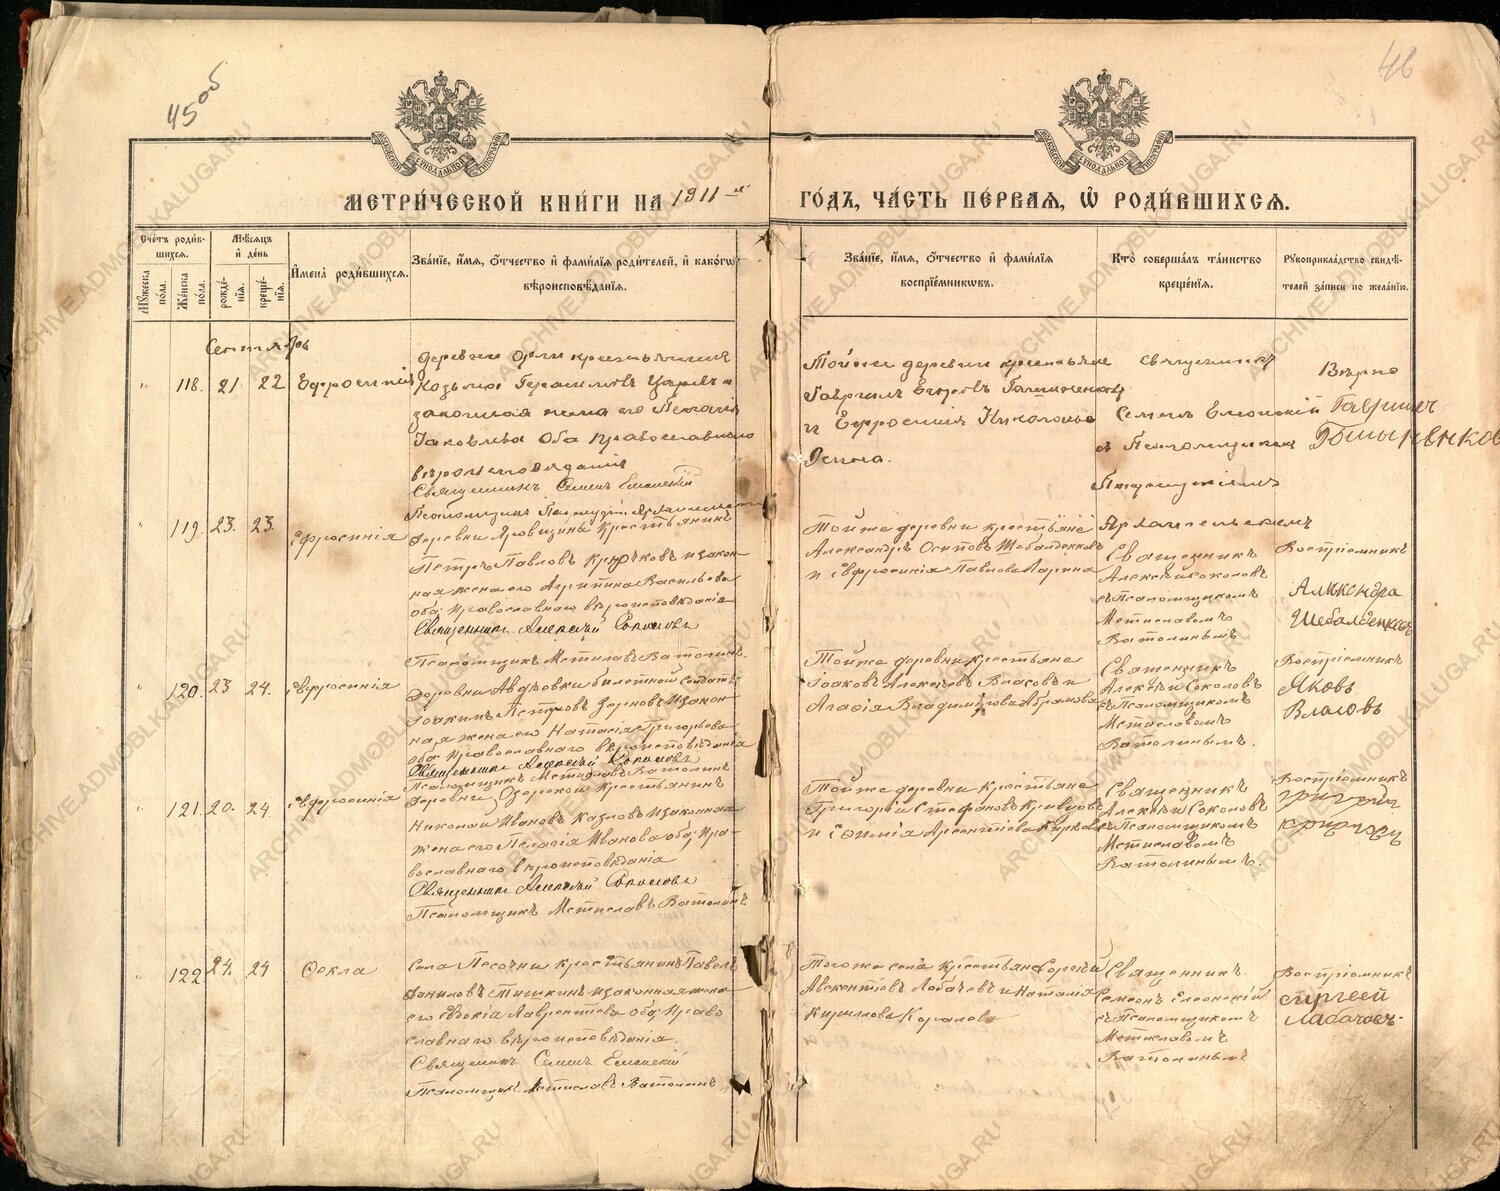 45об
46
МЕТРИ́ЧЕСКОЙ КНИ́ГИ НА 1911-й ГО́ДЪ, ЧА́СТЬ ПЕ́РВАЯ, Ѡ РОДИ́ВШИХСЯ.
Сче́тъ роди́вшихся.
Му́жеска по́ла.
Же́нска по́ла.
Мѣ́сяцъ и҆ де́нь
рожде́нїя.
креще́нїя.
И҆мена̀ роди́вшихся.
Зва́нїе, и҆́мя, ѻ҆́тчество и҆ фами́лїя роди́телей, и҆ како́гѡ вѣроисповѣ́данїя.
Зва́нїе, и҆́мя, ѻ҆́тчество и҆ фами́лїя воспрїе́мникѡвъ.
Кто̀ соверша́лъ та́инство креще́нїя.
Рꙋкоприкла́дство свидѣ́телей за́писи по жела́нїю.
Сентябрь
" 118. 21 22 Ефросинія
деревни крестьянинъ
Козьма Герасимовъ и
законная жена его
Яковлева оба православнаго
вѣроисповѣданія
Священникъ Симеонъ Елеонскій
Псаломщикъ
Той же деревни крестьяне
Гавріилъ Егоровъ
и Ефросинія
Священникъ
Симеонъ Елеонскій
съ Псаломщикомъ
Архангельскимъ
Вѣрно
Гавриилъ
" 119. 23. 23. Ефросинія
Деревни крестьянинъ
Петръ Павловъ Крючковъ и закон-
ная жена его Агрипина Васильева
оба православнаго вѣроисповѣданія
Священникъ Алексѣй Соколовъ
Псаломщикъ Мстиславъ Ватолинъ
Той же деревни крестьяне
Александръ Осиповъ Шебалденковъ
и Ефросинія Павлова Ларина
Священникъ
Алексѣй Соколовъ
съ Псаломщикомъ
Мстиславомъ
Ватолинымъ
Воспріемникъ
Александра
Шебалденковъ
" 120. 23 24. Ефросинія
Деревни Авдѣевки билетной солдатъ
Іоакимъ Петровъ и закон-
ная жена его Григорьева
оба Православнаго вѣроисповѣданія
Священникъ Алексѣй Соколовъ
Псаломщикъ Мстиславъ Ватолинъ
Той же деревни крестьяне
Іоаковъ Алексѣевъ Власовъ и
Агафія Владимірова Абрамова
Священникъ
Алексѣй Соколовъ
съ Псаломщикомъ
Мстиславомъ
Ватолинымъ.
Воспріемникъ
Яковъ
Власовъ
" 121. 20. 24. Ефросинія
Деревни Озерской крестьянинъ
Николай Ивановъ Казловъ и законная
жена его Пелагія Иванова оба Пра-
вославнаго вѣроисповѣданія
Священникъ Алексѣй Соколовъ
Псаломщикъ Мстиславъ Ватолинъ
Той же деревни крестьяне
Григорій Стефановъ Кривцовъ
и Арсентіева
Священникъ
Алексѣй Соколовъ
съ Псаломщикомъ
Мстиславомъ
Ватолинымъ.
Воспріемникъ
Григорій
" 122 24. 24 Ѳекла
Села Песочни крестьянинъ Павелъ
Даниловъ Тишкинъ и законная жена
его Евдокія Лаврентіева оба Право
славнаго вѣроисповѣданія.
Священникъ Симеонъ Елеонскій
Псаломщикъ Мстиславъ Ватолинъ
Того же села крестьяне Сергѣй
Авксентіевъ Лобачевъ и Наталія
Кирилова Королева
Священникъ
Симеонъ Елеонскій
съ Псаломщикомъ
Мстиславомъ
Ватолинымъ
Воспріемникъ
Сиргеей
Лабачовъ
ARCHIVE.ADMOBLKALUGA.RU